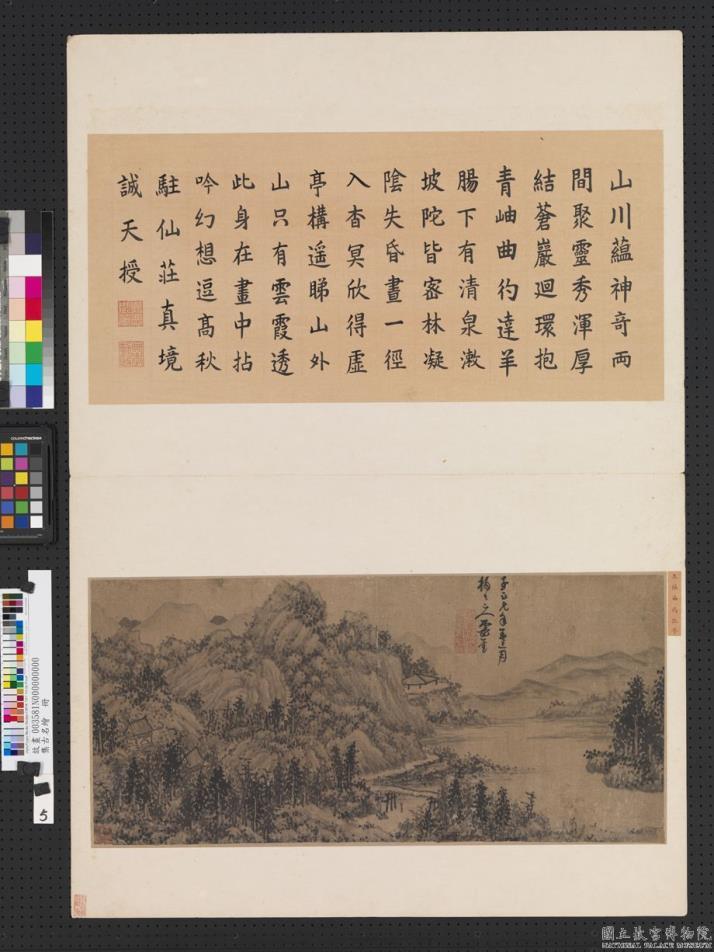 山川蘊神竒两
間聚靈秀渾厚
結蒼巖迴環抱
青岫曲彴達羊
腸下有清泉漱
坡陀皆密林凝
陰失昏晝一徑
入杳冥欣得虛
亭構遥睇山外
山只有雲霞透
此身在畫中拈
吟幻想逗髙秋
駐仙莊真境
誠天授
故畫 003581N000000000
集古名繪 冊
5
國立故宮博物院
NATIONAL PALACE MUSEUM